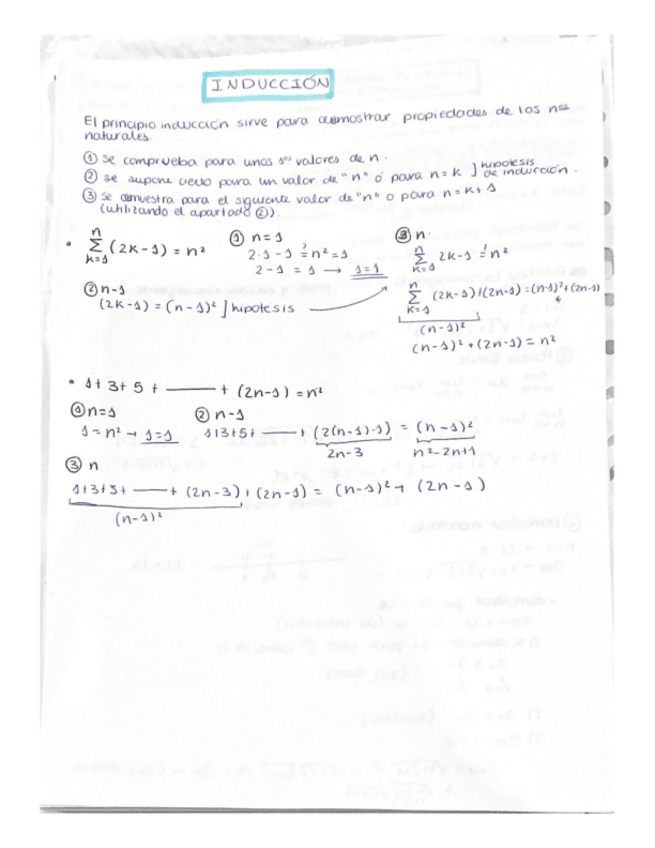 INDUCCIÓN
El principio inducción sirve para demostrar propiedades de los nos
naturales.
① se comprueba para unos 1os valores de n.
② se supone cierto para un valor de "n" ó para n=k ] hipotesis de inducción.
③ se demuestra para el siguiente valor de "n" o para n=k+1
(utilizando el apartado ②).
• n ∑ k=1 (2k-1) = n²
① n=1
2·1-1 ?= n² = 1
2-1 = 1 → 1=1
② n-1
(2k-1) = (n-1)² ] hipotesis
③ n
n ∑ k=1 2k-1 ?= n²
n ∑ k=1 (2k-1)+(2n-1) = (n-1)²+(2n-1)
(n-1)²
(n-1)² + (2n-1) = n²
• 1+3+5+ —— + (2n-1) = n²
① n=1
1 = n² → 1=1
② n-1
1+3+5+ —— + (2(n-1)-1) = (n-1)²
2n-3 n²-2n+1
③ n
1+3+5+ —— + (2n-3) + (2n-1) = (n-1)² + (2n-1)
(n-1)²